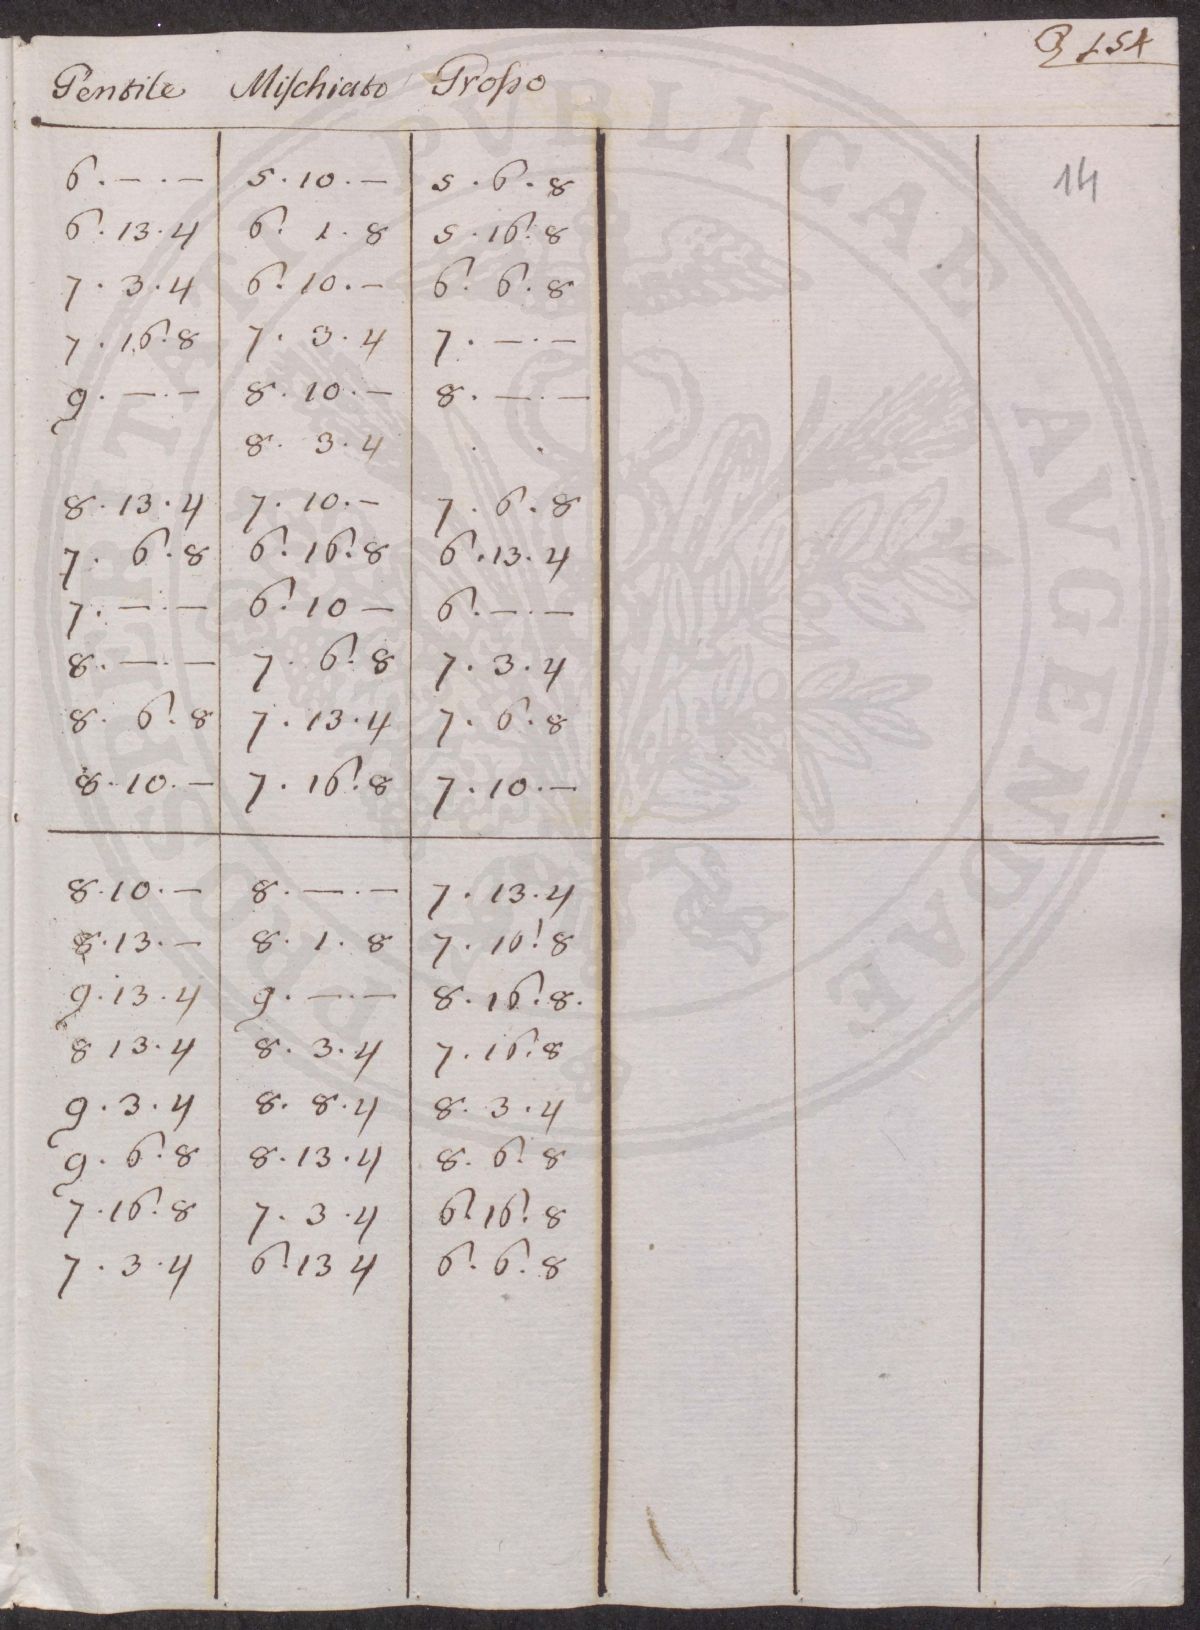 154
Gentile Mischiato Grosso
14
6.—.— 5.10.— 5.6.8
6.13.4 6.1.8 5.16.8
7.3.4 6.10.— 6.6.8
7.16.8 7.3.4 7.—.—
9.—.— 8.10.— 8.—.—
8.3.4 . .
8.13.4 7.10.— 7.6.8
7.6.8 6.16.8 6.13.4
7.—.— 6.10— 6.—.—
8.—.— 7.6.8 7.3.4
8.6.8 7.13.4 7.6.8
8.10.— 7.16.8 7.10.—
8.10.— 8.—.— 7.13.4
8.13.— 8.1.8 7.16.8
9.13.4 9.—.— 8.16.8.
8 13.4 8.3.4 7.16.8
9.3.4 8.8.4 8.3.4
9.6.8 8.13.4 8.6.8
7.16.8 7.3.4 6.16.8
7.3.4 6.13 4 6.6.8
PERPETUITATI PVBLICAE AVGENDAE